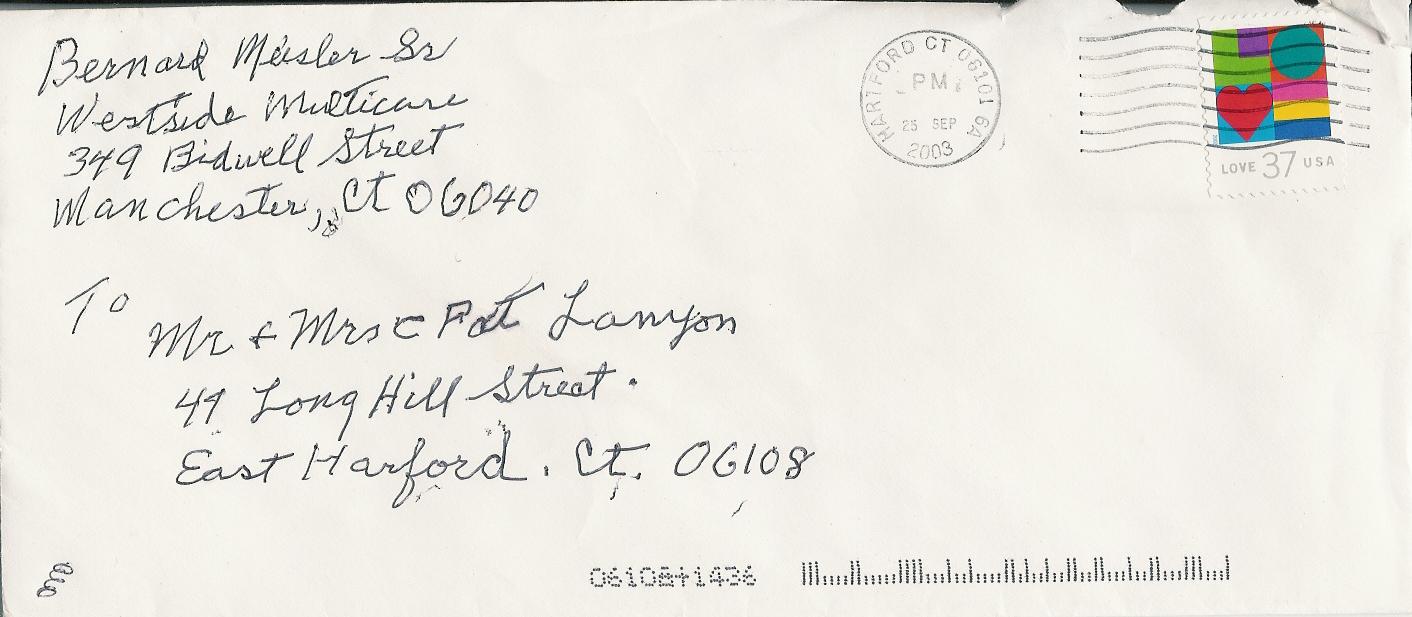 Bernard Meisler Sr
Westside Multicare
349 Bidwell Street
Manchester, Ct 06040
HARTFORD CT 06101 6A
PM
25 SEP
2003
LOVE 37 USA
To
Mr & Mrs C Pat Lanyon
49 Long Hill Street.
East Harford. Ct. 06108
06108+1436